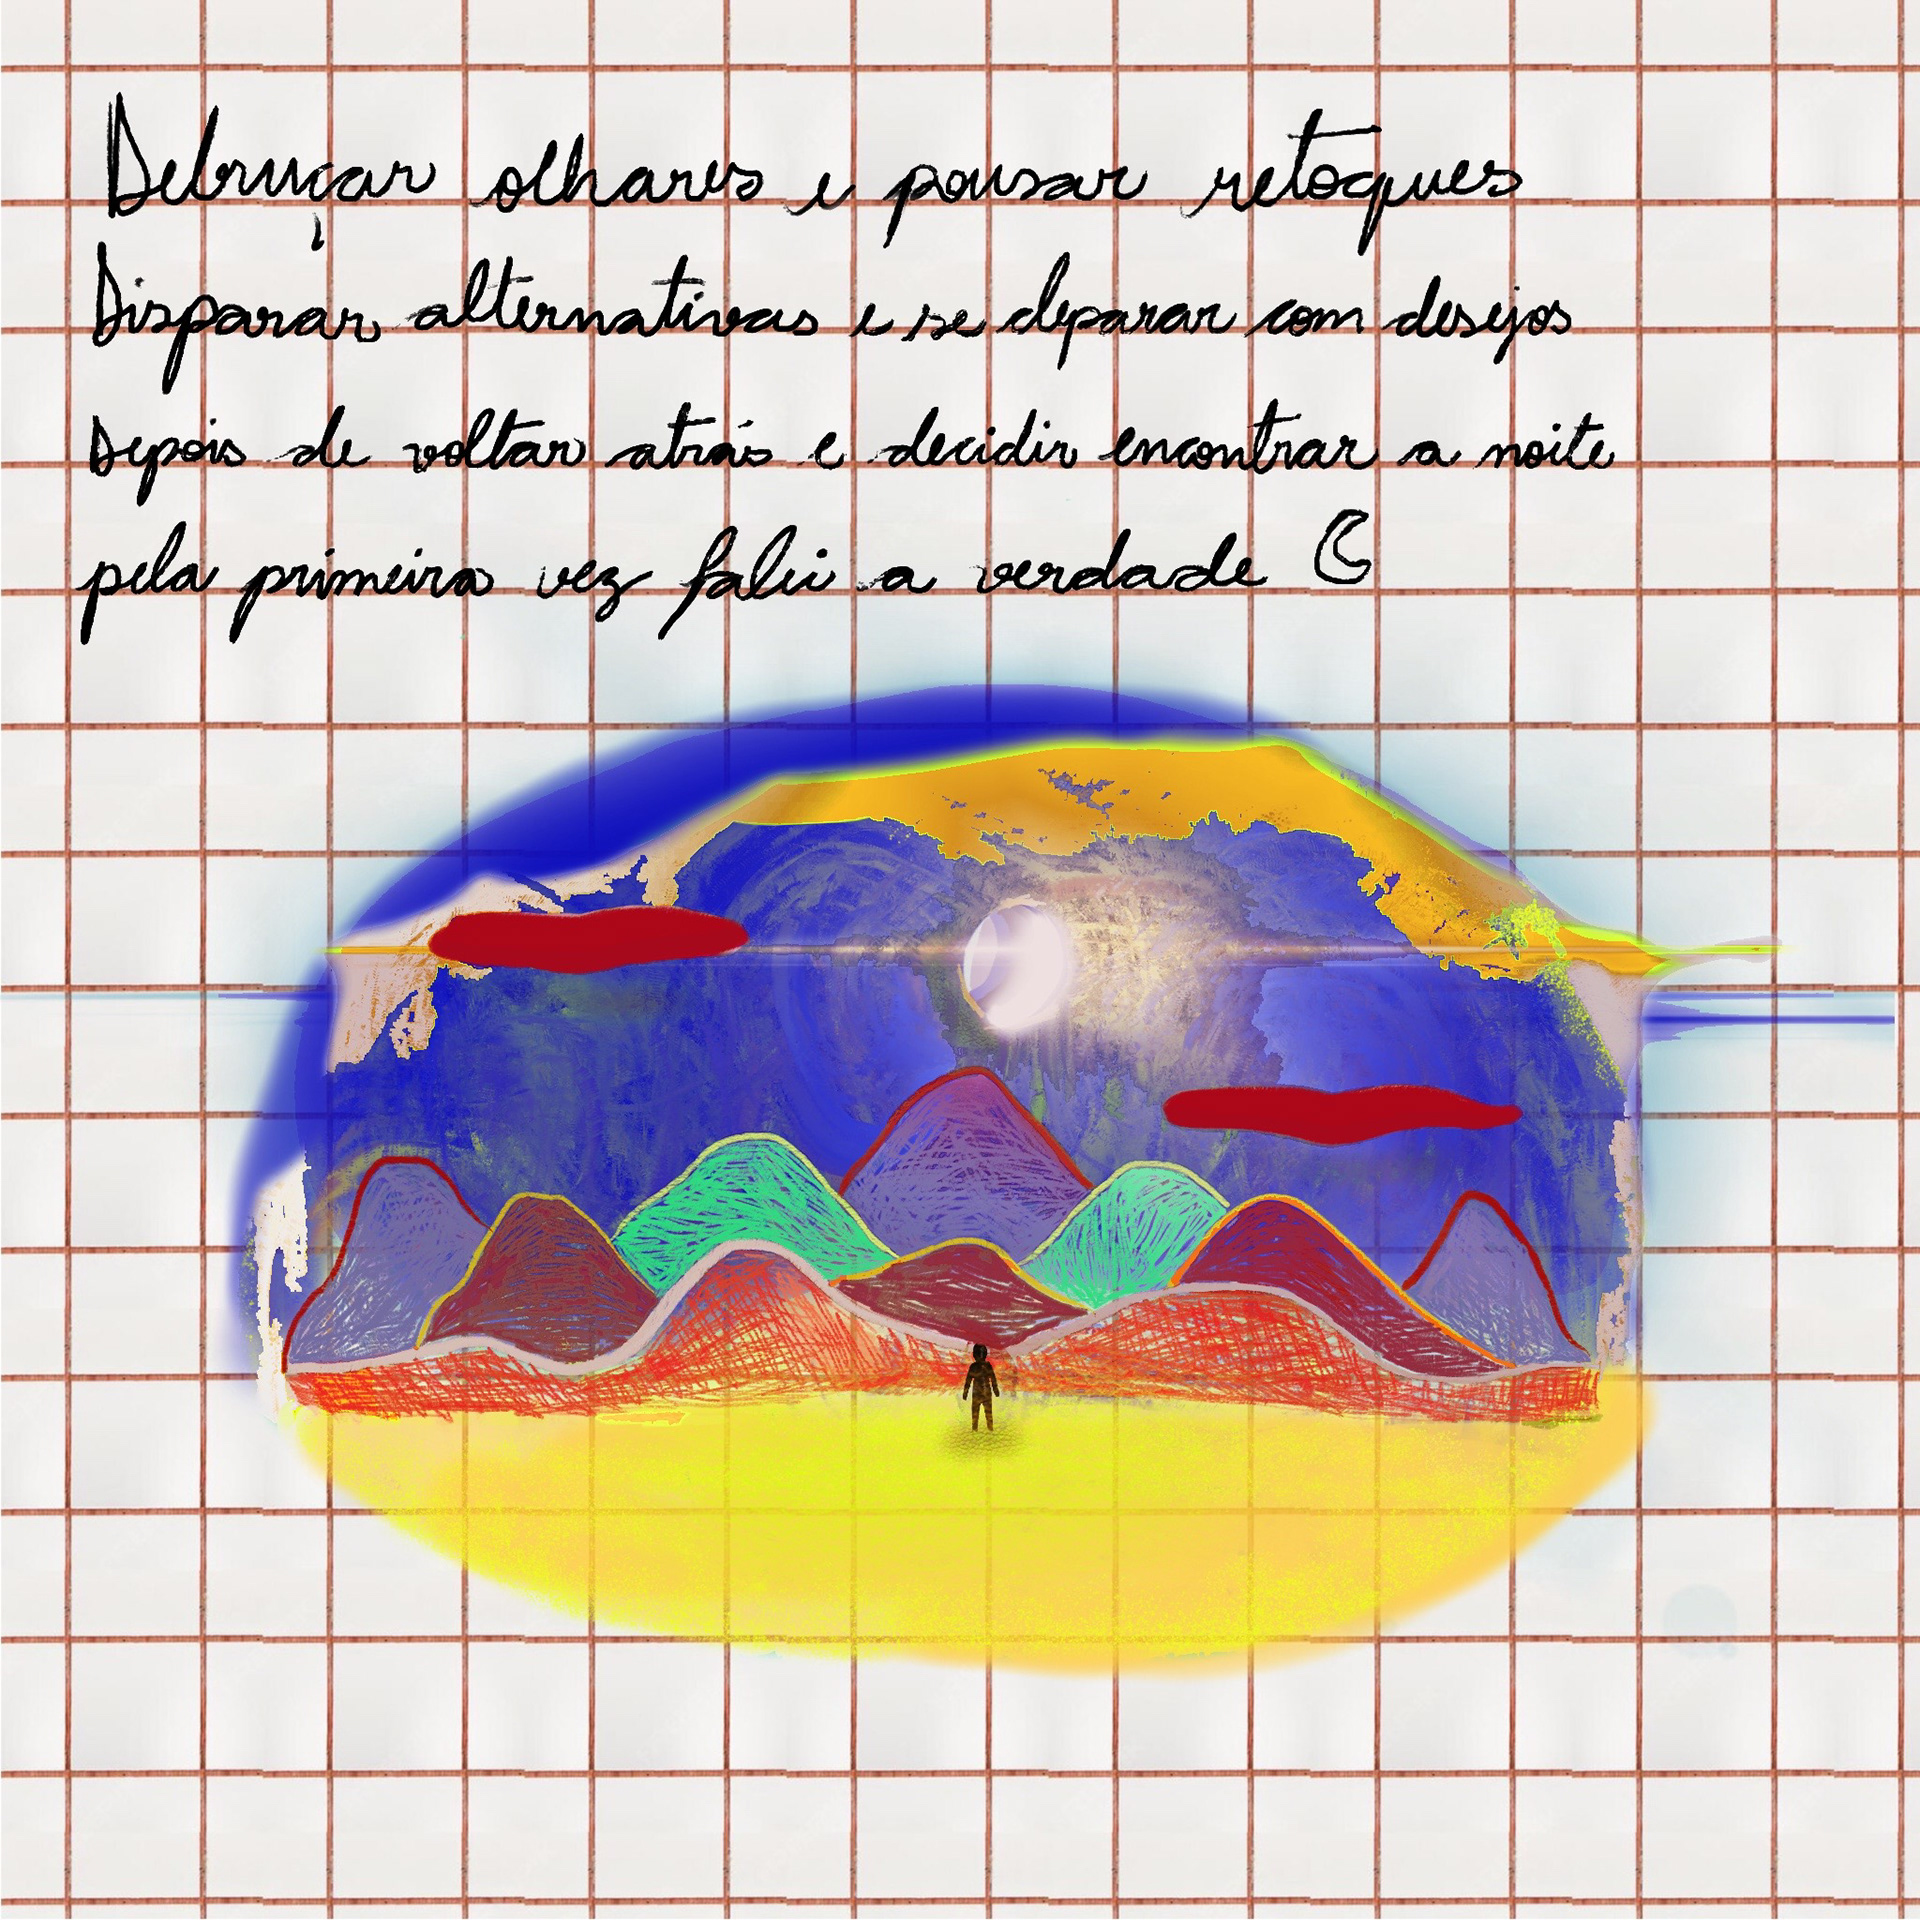 Debruçar olhares e pousar retoques
Disparar alternativas e se deparar com desejos
Depois de voltar atrás e decidir encontrar a noite
pela primeira vez falei a verdade